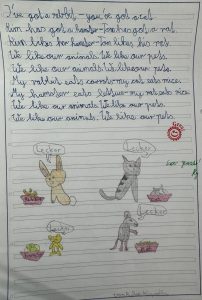 I've got a rabbit - you've got a cat.
Kim has got a hamster - Tom has got a rat.
Kim likes her hamster - Tom likes his rat.
We like our animals. We like our pets.
We like our animals. We like our pets.
My rabbit eats carrots - my cat eats mice.
My hamster eats lettuce - my rat eats rice.
We like our animals. We like our pets.
We like our animals. We like our pets.
Lecker
Lecker
Lecker
Lecker